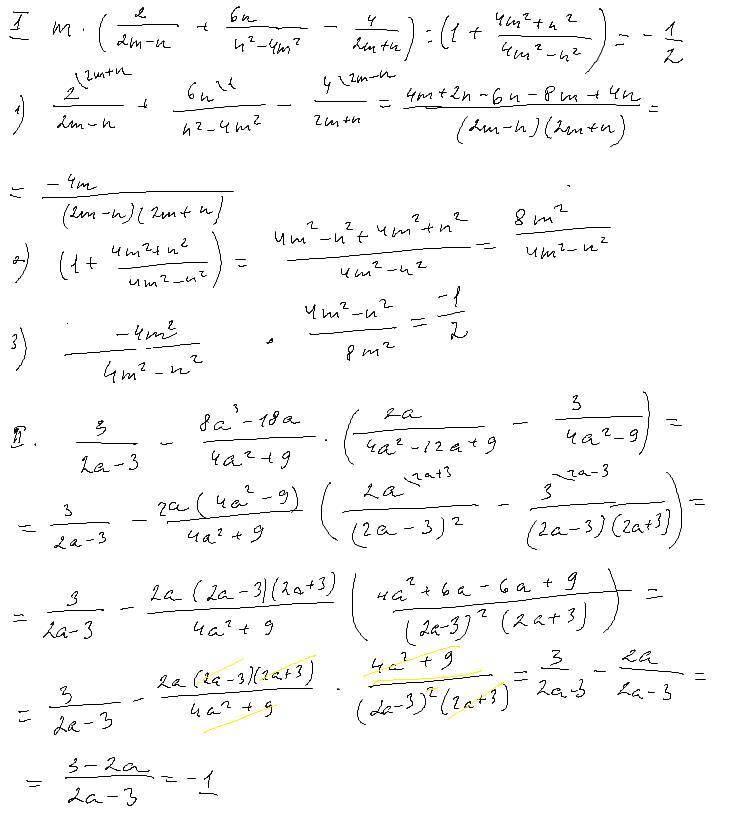 I m · (2/(2m-n) + 6n/(n²-4m²) - 4/(2m+n)) : (1 + (4m²+n²)/(4m²-n²)) = -1/2
1) 2\2m+n/(2m-n) + 6n\1/(n²-4m²) - 4\2m-n/(2m+n) = (4m+2n-6n-8m+4n)/((2m-n)(2m+n)) =
= -4m/((2m-n)(2m+n))
2) (1 + (4m²+n²)/(4m²-n²)) = (4m²-n²+4m²+n²)/(4m²-n²) = 8m²/(4m²-n²)
3) -4m²/(4m²-n²) · (4m²-n²)/8m² = -1/2
II. 3/(2a-3) - (8a³-18a)/(4a²+9) · (2a/(4a²-12a+9) - 3/(4a²-9)) =
= 3/(2a-3) - 2a(4a²-9)/(4a²+9) (2a\2a+3/(2a-3)² - 3\2a-3/((2a-3)(2a+3))) =
= 3/(2a-3) - 2a(2a-3)(2a+3)/(4a²+9) ((4a²+6a-6a+9)/((2a-3)²(2a+3))) =
= 3/(2a-3) - 2a(2a-3)(2a+3)/(4a²+9) · (4a²+9)/((2a-3)²(2a+3)) = 3/(2a-3) - 2a/(2a-3) =
= (3-2a)/(2a-3) = -1